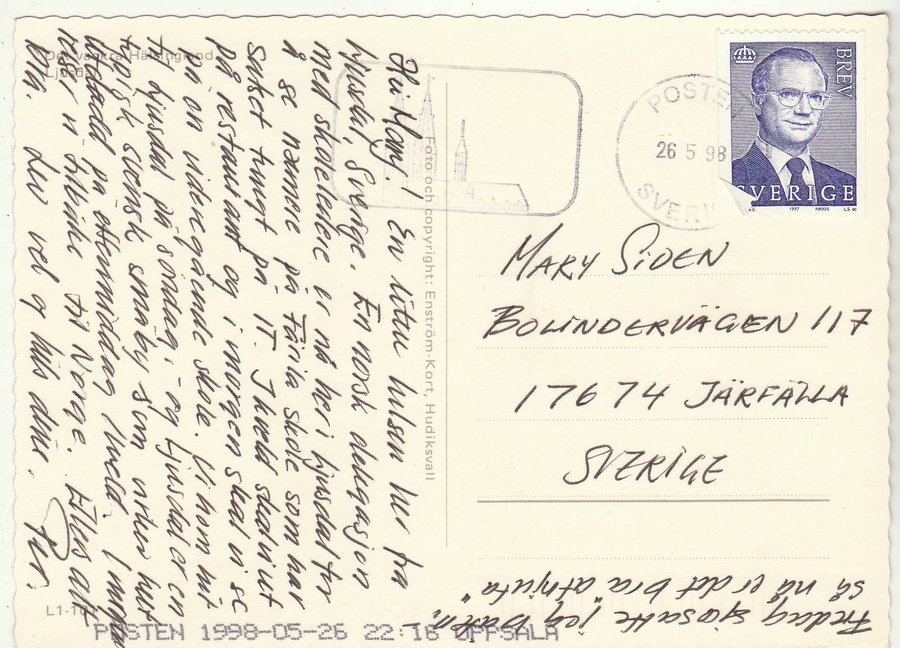 Det vackra Hälsingland
Ljusdal
Hei Mary! En liten hilsen her fra
Ljusdal, Sverige. En norsk delegasjon
med skoleledere er nå her i Ljusdal for
å se nærmere på Färila skole som har
satset tungt på IT. I kveld skal vi ut
på restaurant og i morgen skal vi se
på en videregående skole. Vi kom hit
til Ljusdal på søndag, og Ljusdal er en
typisk svensk småby som virker helt
på ettermiddag I morgen
reiser vi tilbake til Norge. Ellers alt
bra. Lev vel og hils dine. Per.
Foto och copyright: Enström-Kort, Hudiksvall
POSTEN
26 5 98
SVERI
BREV
SVERIGE
1997
MARY SIDEN
BOLINDERVÄGEN 117
17674 JÄRFÄLLA
SVERIGE
Fredag sjøsatte jeg båten,
så nå er det bra "atmjuta"
L1-101
POSTEN 1998-05-26 22:16 UPPSALA